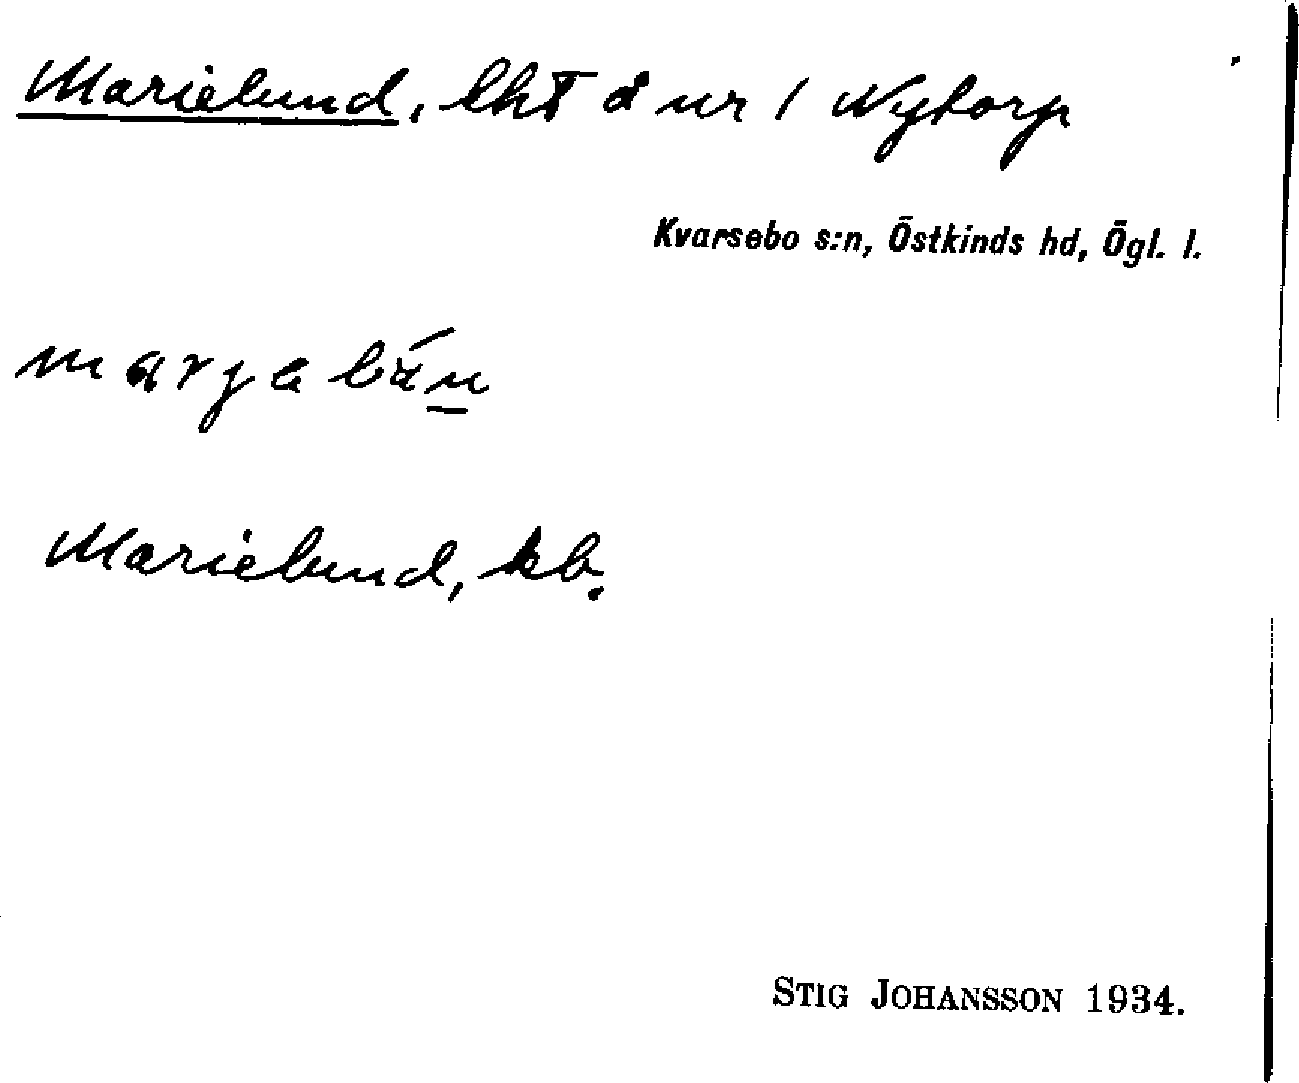 Marielund, lht å nr 1 Nytorp
Kvarsebo s:n, Östkinds hd, Ögl. l.
Marielund, kb.
STIG JOHANSSON 1934.